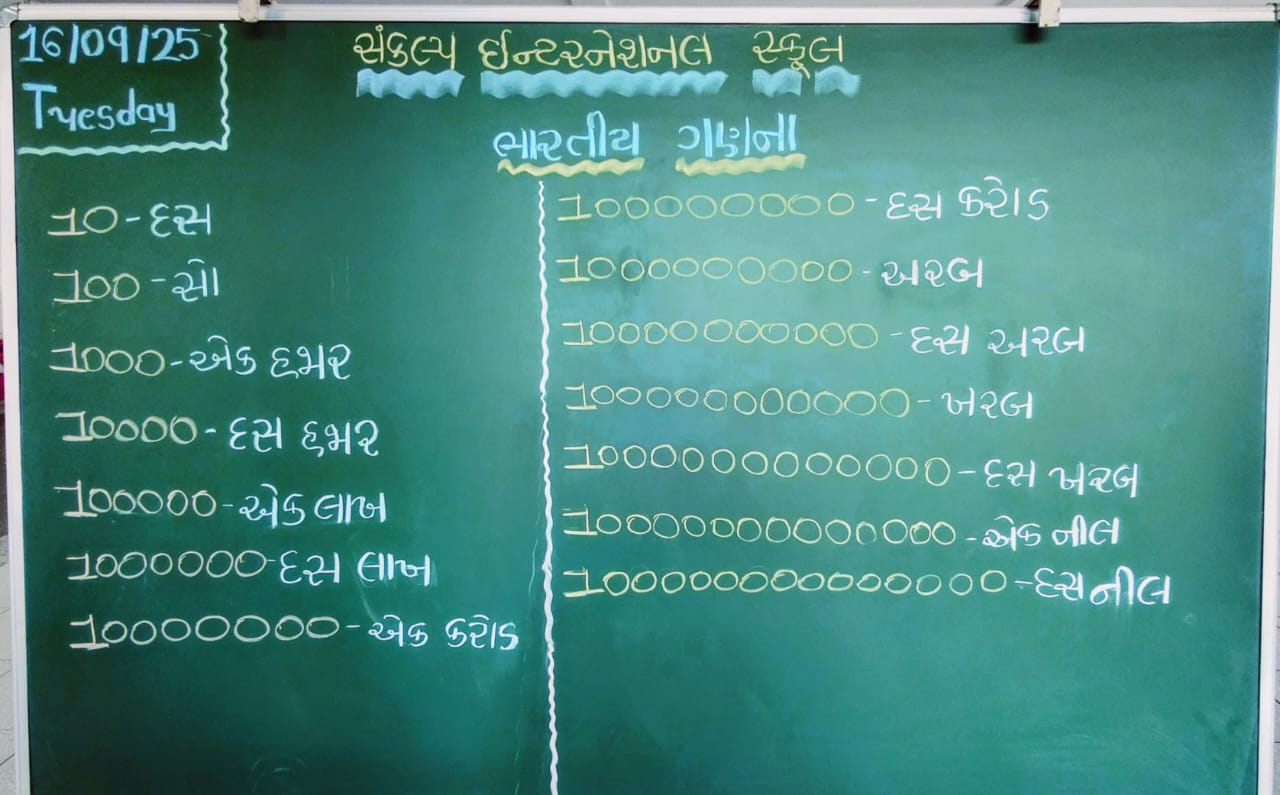 16/09/25
Tuesday
સંકલ્પ ઈન્ટરનેશનલ સ્કૂલ
ભારતીય ગણના
10 - દસ
100 - સો
1000 - એક હજાર
10000 - દસ હજાર
100000 - એક લાખ
1000000 - દસ લાખ
10000000 - એક કરોડ
100000000 - દસ કરોડ
1000000000 - અરબ
10000000000 - દસ અરબ
100000000000 - ખરબ
1000000000000 - દસ ખરબ
10000000000000 - એક નીલ
100000000000000 - દસ નીલ